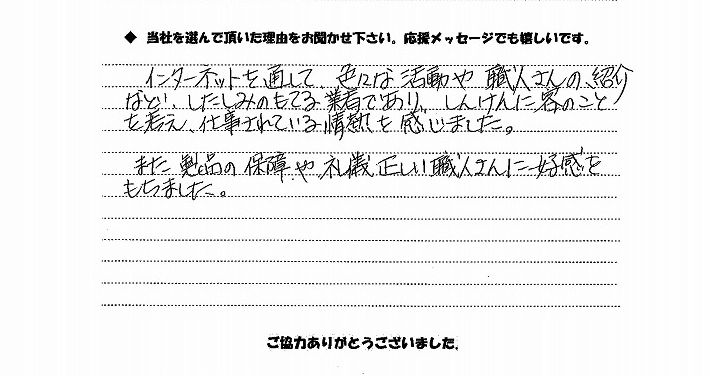 ◆ 当社を選んで頂いた理由をお聞かせ下さい。応援メッセージでも嬉しいです。
インターネットを通して、色々な活動や職人さんの紹介
など、したしみのもてる業者であり、しんけんに客のこと
を考え、仕事されている情熱を感じました。
また製品の保障や、礼儀正しい職人さんに好感を
もちました。
ご協力ありがとうございました。